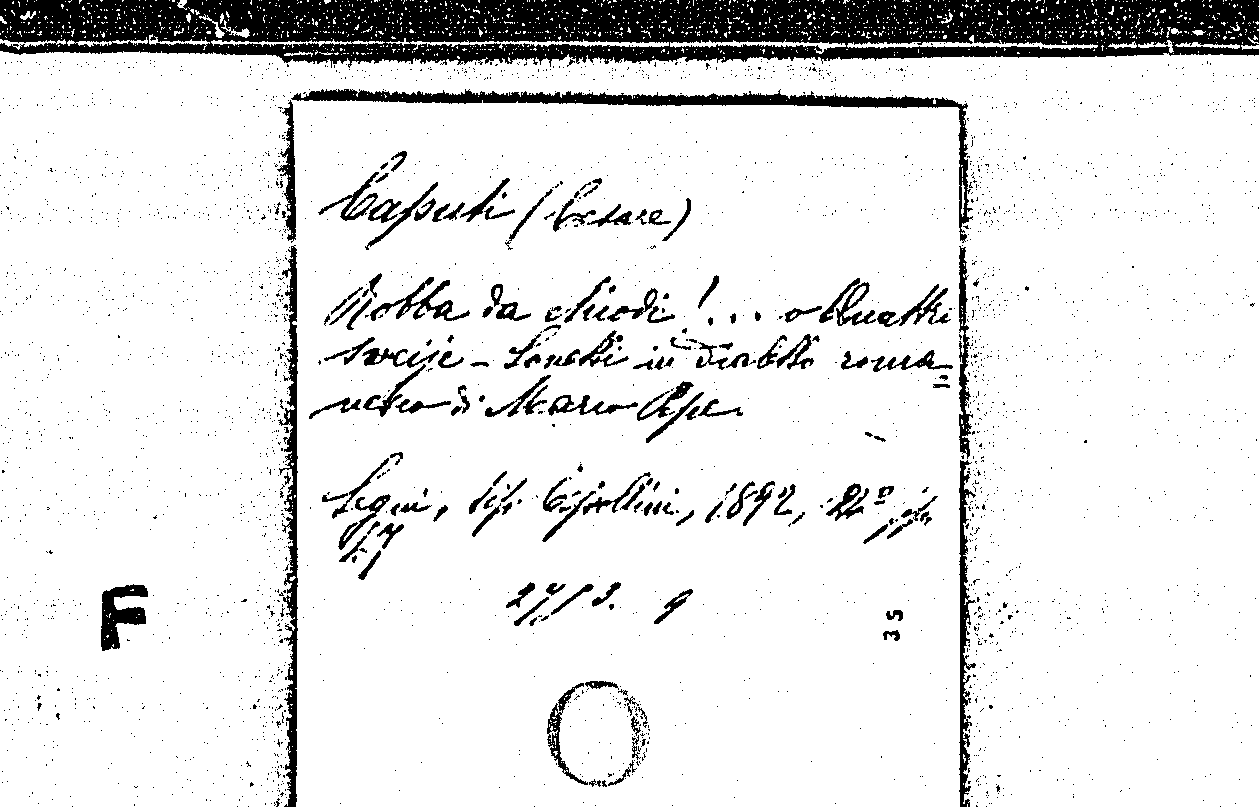 Caputi (Cesare)
Robba da chiodi!... o Quattri
svcije - Sonetti in dialetto roma=
nesco di Mario Pepe.
Segni, tip. Cipollini, 1892,
27/3. 9
35
F